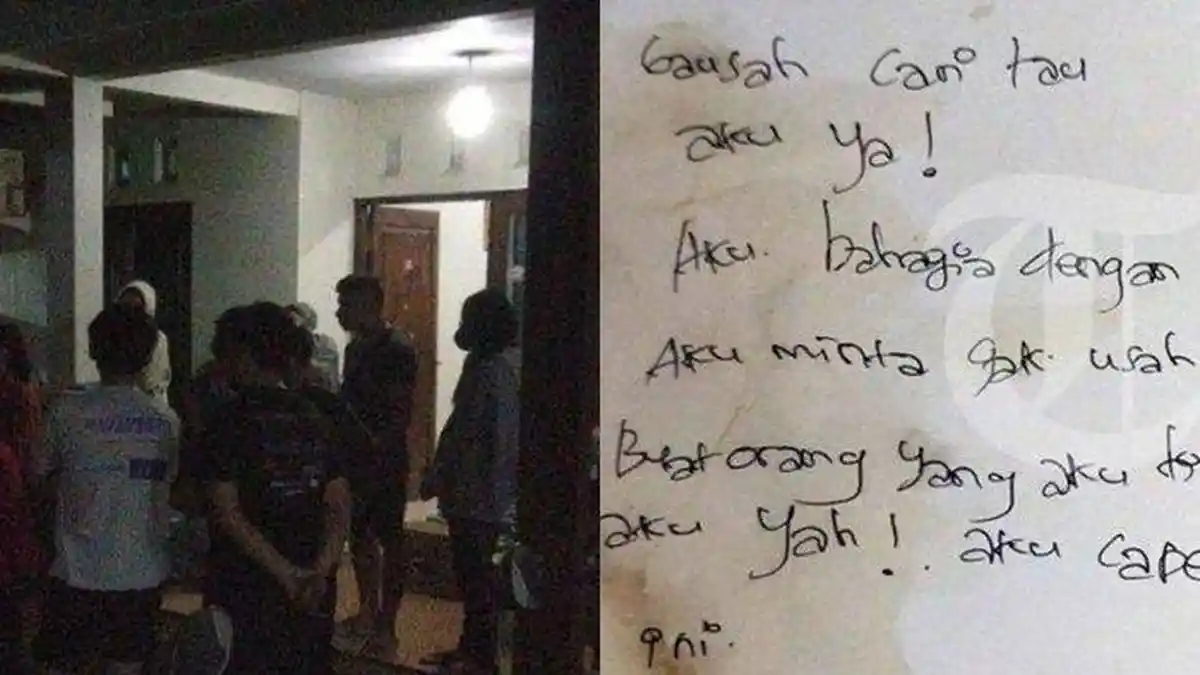 Gausah Cari tau
aku ya!
Aku. bahagia dengan
Aku minta gak. usah
Buat orang yang aku
aku yah!. aku cape
ini.